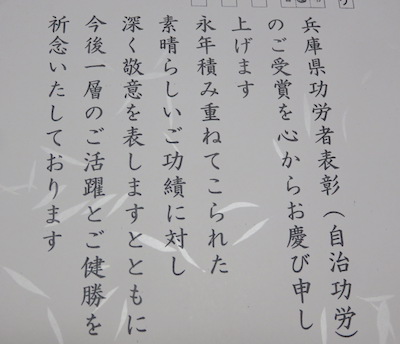 兵庫県功労者表彰(自治功労)
のご受賞を心からお慶び申し
上げます
永年積み重ねてこられた
素晴らしいご功績に対し
深く敬意を表しますとともに
今後一層のご活躍とご健勝を
祈念いたしております